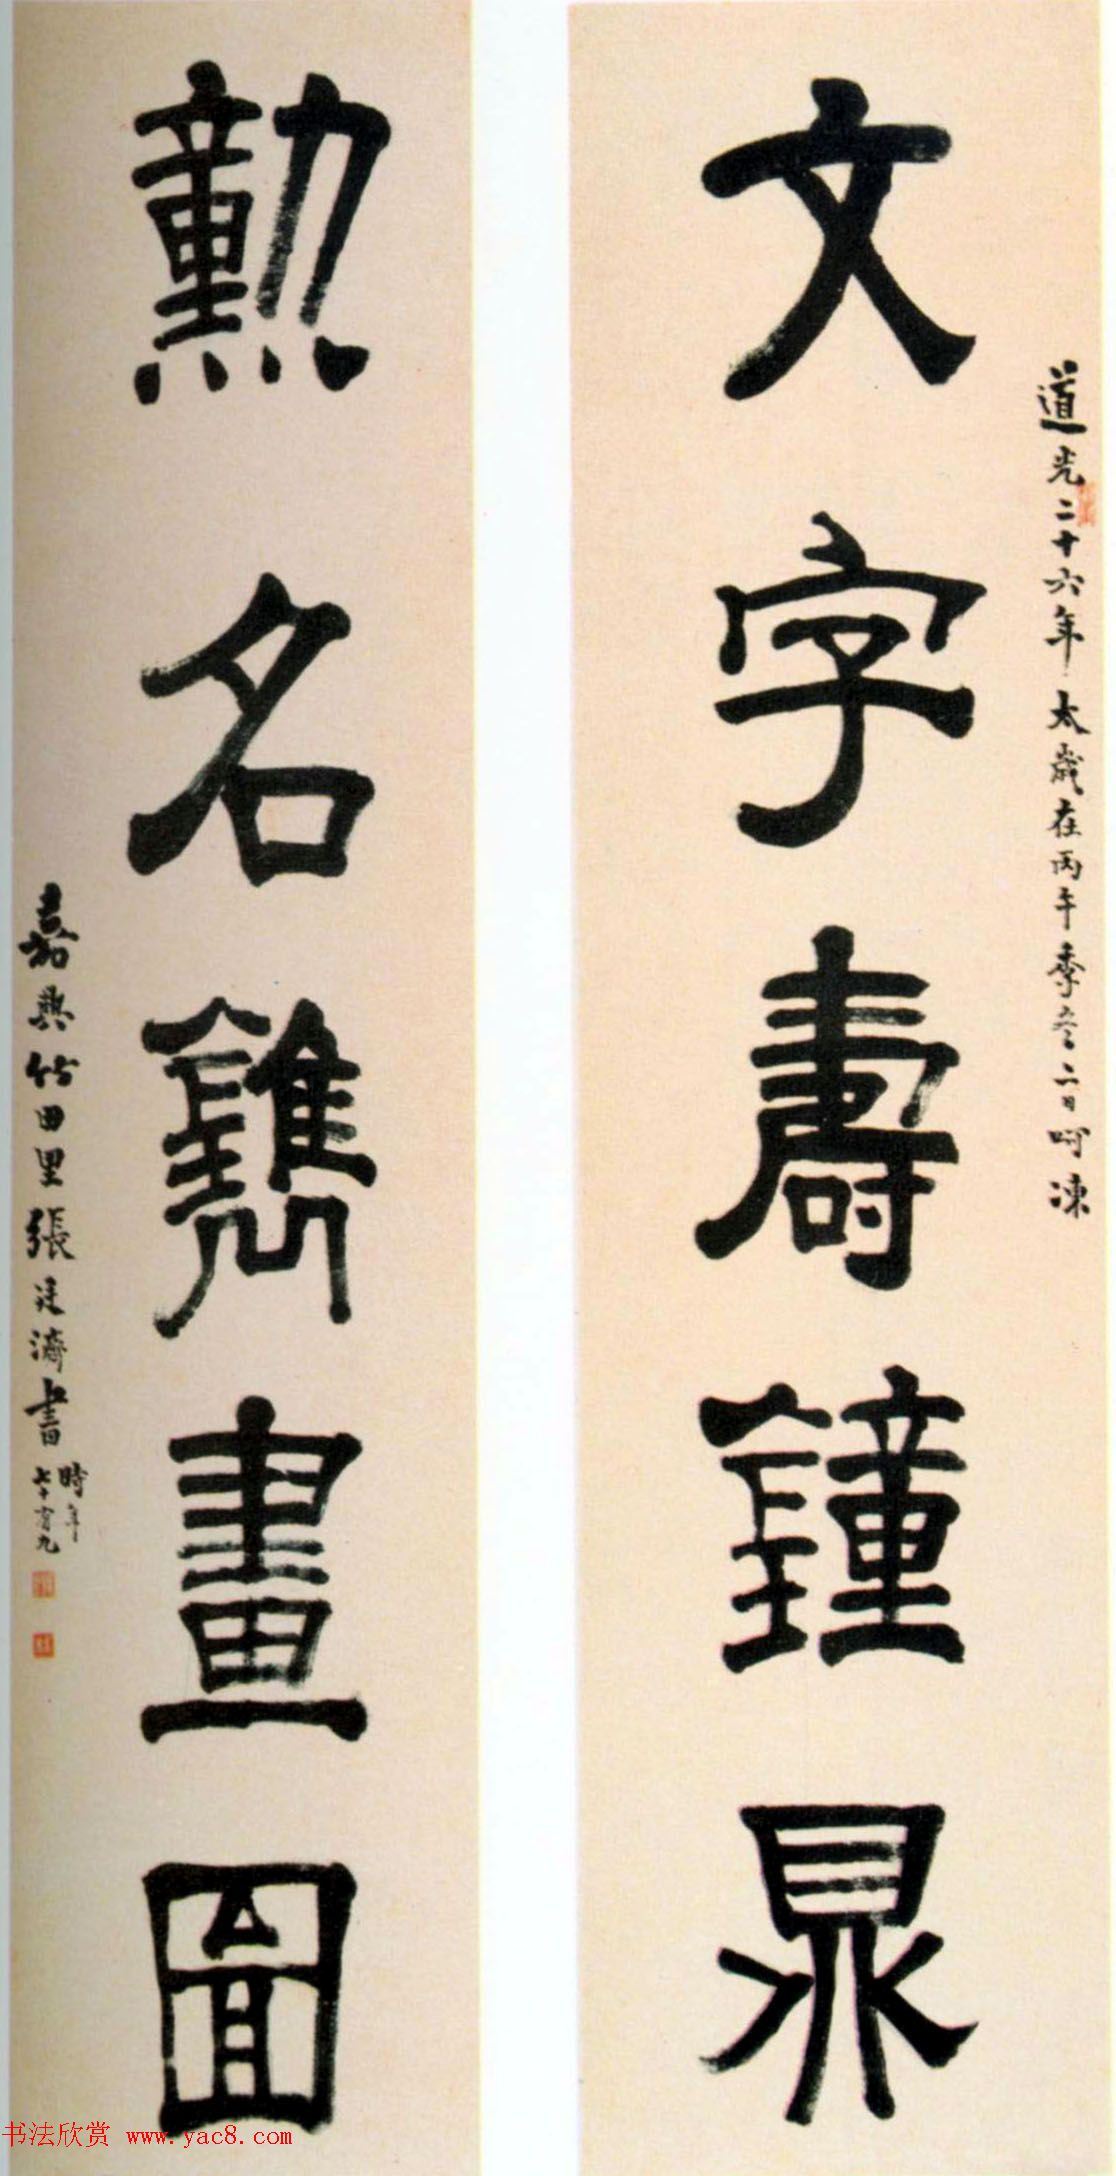 道光二十六年太歲在丙午季冬二日呵凍
文字壽鐘鼎
勳名鐫畫圖
嘉興竹田里張廷濟書
時年
七十有九
书法欣赏 www.yac8.com